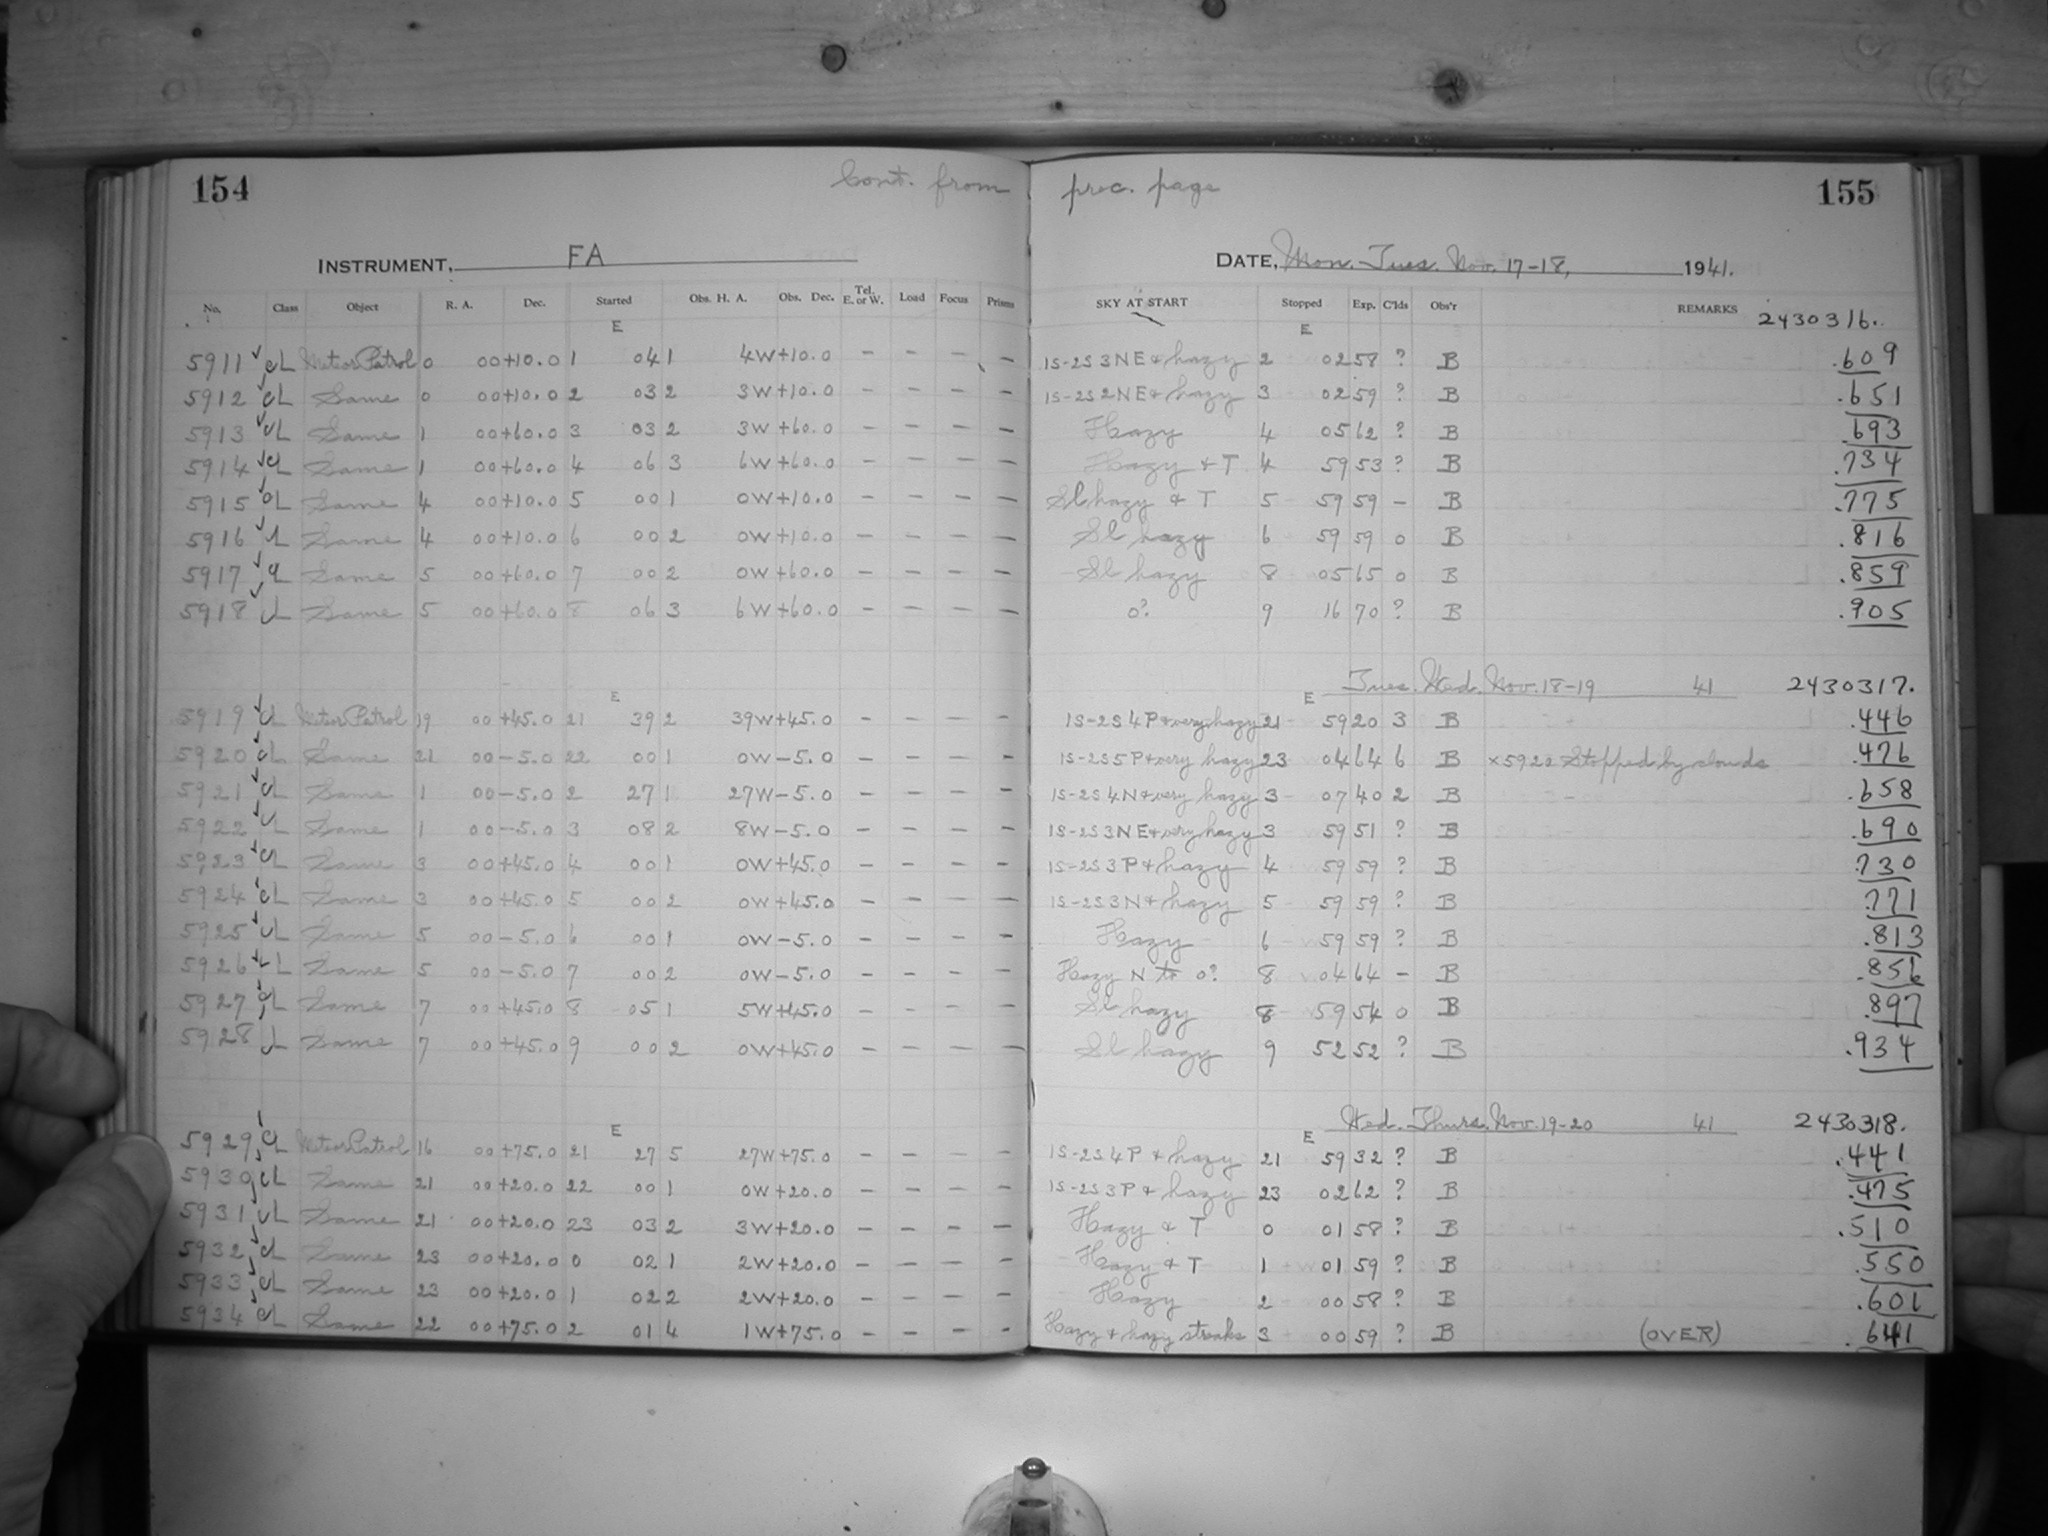 154 Cont. from prec. page 155
INSTRUMENT, FA DATE, Mon. Tues. Nov. 17-18, 1941.
No. Class Object R. A. Dec. Started Obs. H. A. Obs. Dec. Tel. E. or W. Load Focus Prisms SKY AT START Stopped Exp. C'lds Obs'r REMARKS 2430316.
E E
5911 cL Meteor Patrol 0 00 +10.0 1 04 1 4W +10.0 - - - - 1S-2S 3NE & hazy 2 02 58 ? B .609
5912 cL Same 0 00 +10.0 2 03 2 3W +10.0 - - - - 1S-2S 2NE & hazy 3 02 59 ? B .651
5913 cL Same 1 00 +60.0 3 03 2 3W +60.0 - - - - Hazy 4 05 62 ? B .693
5914 cL Same 1 00 +60.0 4 06 3 6W +60.0 - - - - Hazy & T 4 59 53 ? B .734
5915 cL Same 4 00 +10.0 5 00 1 0W +10.0 - - - - Sl hazy & T 5 59 59 - B .775
5916 cL Same 4 00 +10.0 6 00 2 0W +10.0 - - - - Sl hazy 6 59 59 0 B .816
5917 cL Same 5 00 +60.0 7 00 2 0W +60.0 - - - - Sl hazy 8 05 65 0 B .859
5918 cL Same 5 00 +60.0 8 06 3 6W +60.0 - - - - 0? 9 16 70 ? B .905
E E Tues. Wed. Nov. 18-19 41 2430317.
5919 cL Meteor Patrol 19 00 +45.0 21 39 2 39W +45.0 - - - - 1S-2S 4P & very hazy 21 59 20 3 B .446
5920 cL Same 21 00 -5.0 22 00 1 0W -5.0 - - - - 1S-2S 5P & very hazy 23 04 64 6 B x5920 Stopped by clouds .476
5921 cL Same 1 00 -5.0 2 27 1 27W -5.0 - - - - 1S-2S 4N & very hazy 3 07 40 2 B .658
5922 cL Same 1 00 -5.0 3 08 2 8W -5.0 - - - - 1S-2S 3NE & very hazy 3 59 51 ? B .690
5923 cL Same 3 00 +45.0 4 00 1 0W +45.0 - - - - 1S-2S 3P & hazy 4 59 59 ? B .730
5924 cL Same 3 00 +45.0 5 00 2 0W +45.0 - - - - 1S-2S 3N & hazy 5 59 59 ? B .771
5925 cL Same 5 00 -5.0 6 00 1 0W -5.0 - - - - Hazy 6 59 59 ? B .813
5926 cL Same 5 00 -5.0 7 00 2 0W -5.0 - - - - Hazy N to 0? 8 04 64 - B .856
5927 cL Same 7 00 +45.0 8 05 1 5W +45.0 - - - - Sl hazy 8 59 54 0 B .897
5928 cL Same 7 00 +45.0 9 00 2 0W +45.0 - - - - Sl hazy 9 52 52 ? B .934
E E Wed. Thurs. Nov. 19-20 41 2430318.
5929 cL Meteor Patrol 16 00 +75.0 21 27 5 27W +75.0 - - - - 1S-2S 4P & hazy 21 59 32 ? B .441
5930 cL Same 21 00 +20.0 22 00 1 0W +20.0 - - - - 1S-2S 3P & hazy 23 02 62 ? B .475
5931 cL Same 21 00 +20.0 23 03 2 3W +20.0 - - - - Hazy & T 0 01 58 ? B .510
5932 cL Same 23 00 +20.0 0 02 1 2W +20.0 - - - - Hazy & T 1 01 59 ? B .550
5933 cL Same 23 00 +20.0 1 02 2 2W +20.0 - - - - Hazy 2 00 58 ? B .601
5934 cL Same 22 00 +75.0 2 01 4 1W +75.0 - - - - Hazy & hazy streaks 3 00 59 ? B (OVER) .641